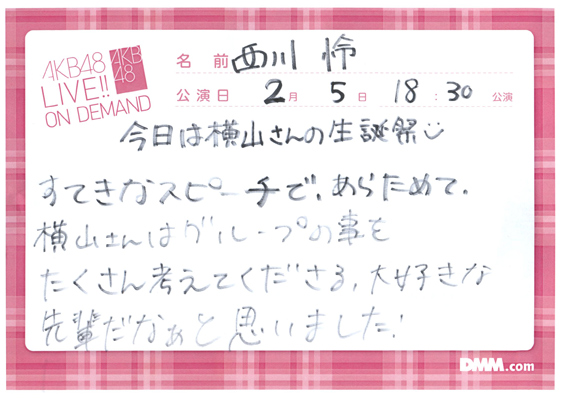 AKB48
LIVE!!
ON DEMAND
AKB
48
名前 西川 怜
公演日 2月 5日 18:30 公演
今日は横山さんの生誕祭
すてきなスピーチで、あらためて、
横山さんはグループの事を
たくさん考えてくださる、大好きな
先輩だなぁと思いました!
DMM.com